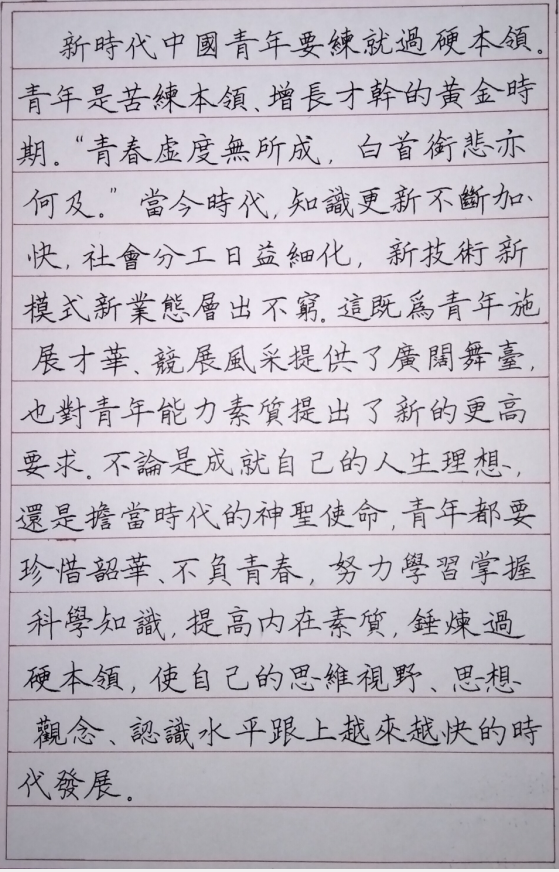 新時代中國青年要練就過硬本領。
青年是苦練本領、增長才幹的黃金時
期。“青春虛度無所成，白首銜悲亦
何及。”當今時代，知識更新不斷加
快，社會分工日益細化，新技術新
模式新業態層出不窮。這既爲青年施
展才華、競展風采提供了廣闊舞臺，
也對青年能力素質提出了新的更高
要求。不論是成就自己的人生理想，
還是擔當時代的神聖使命，青年都要
珍惜韶華、不負青春，努力學習掌握
科學知識，提高内在素質，錘煉過
硬本領，使自己的思維視野、思想
觀念、認識水平跟上越來越快的時
代發展。